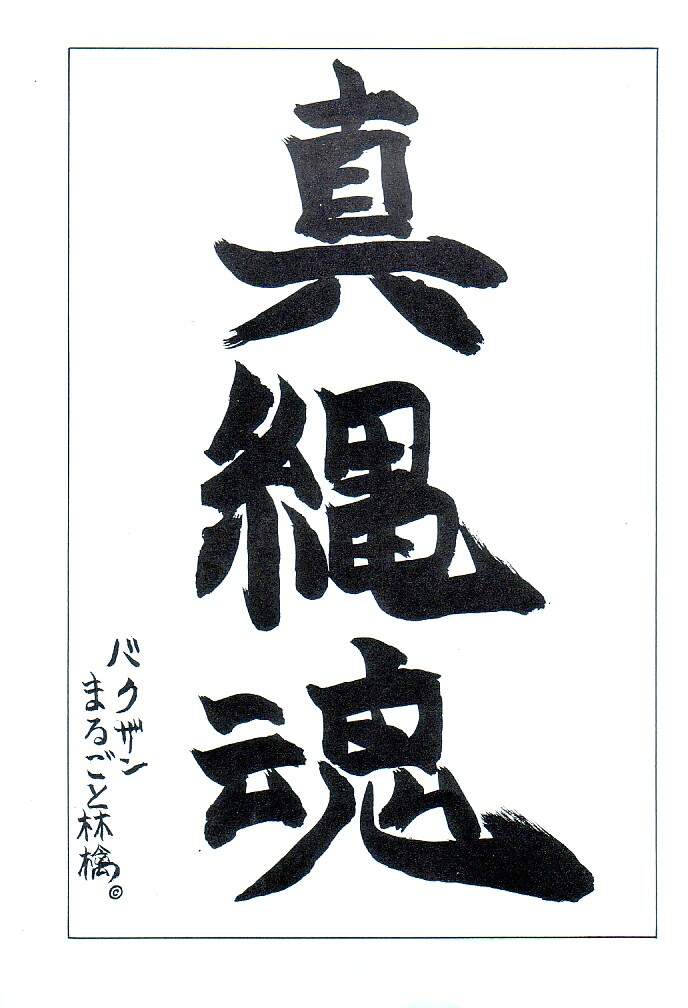 真縄魂
バクザン
まるごと林檎。
©